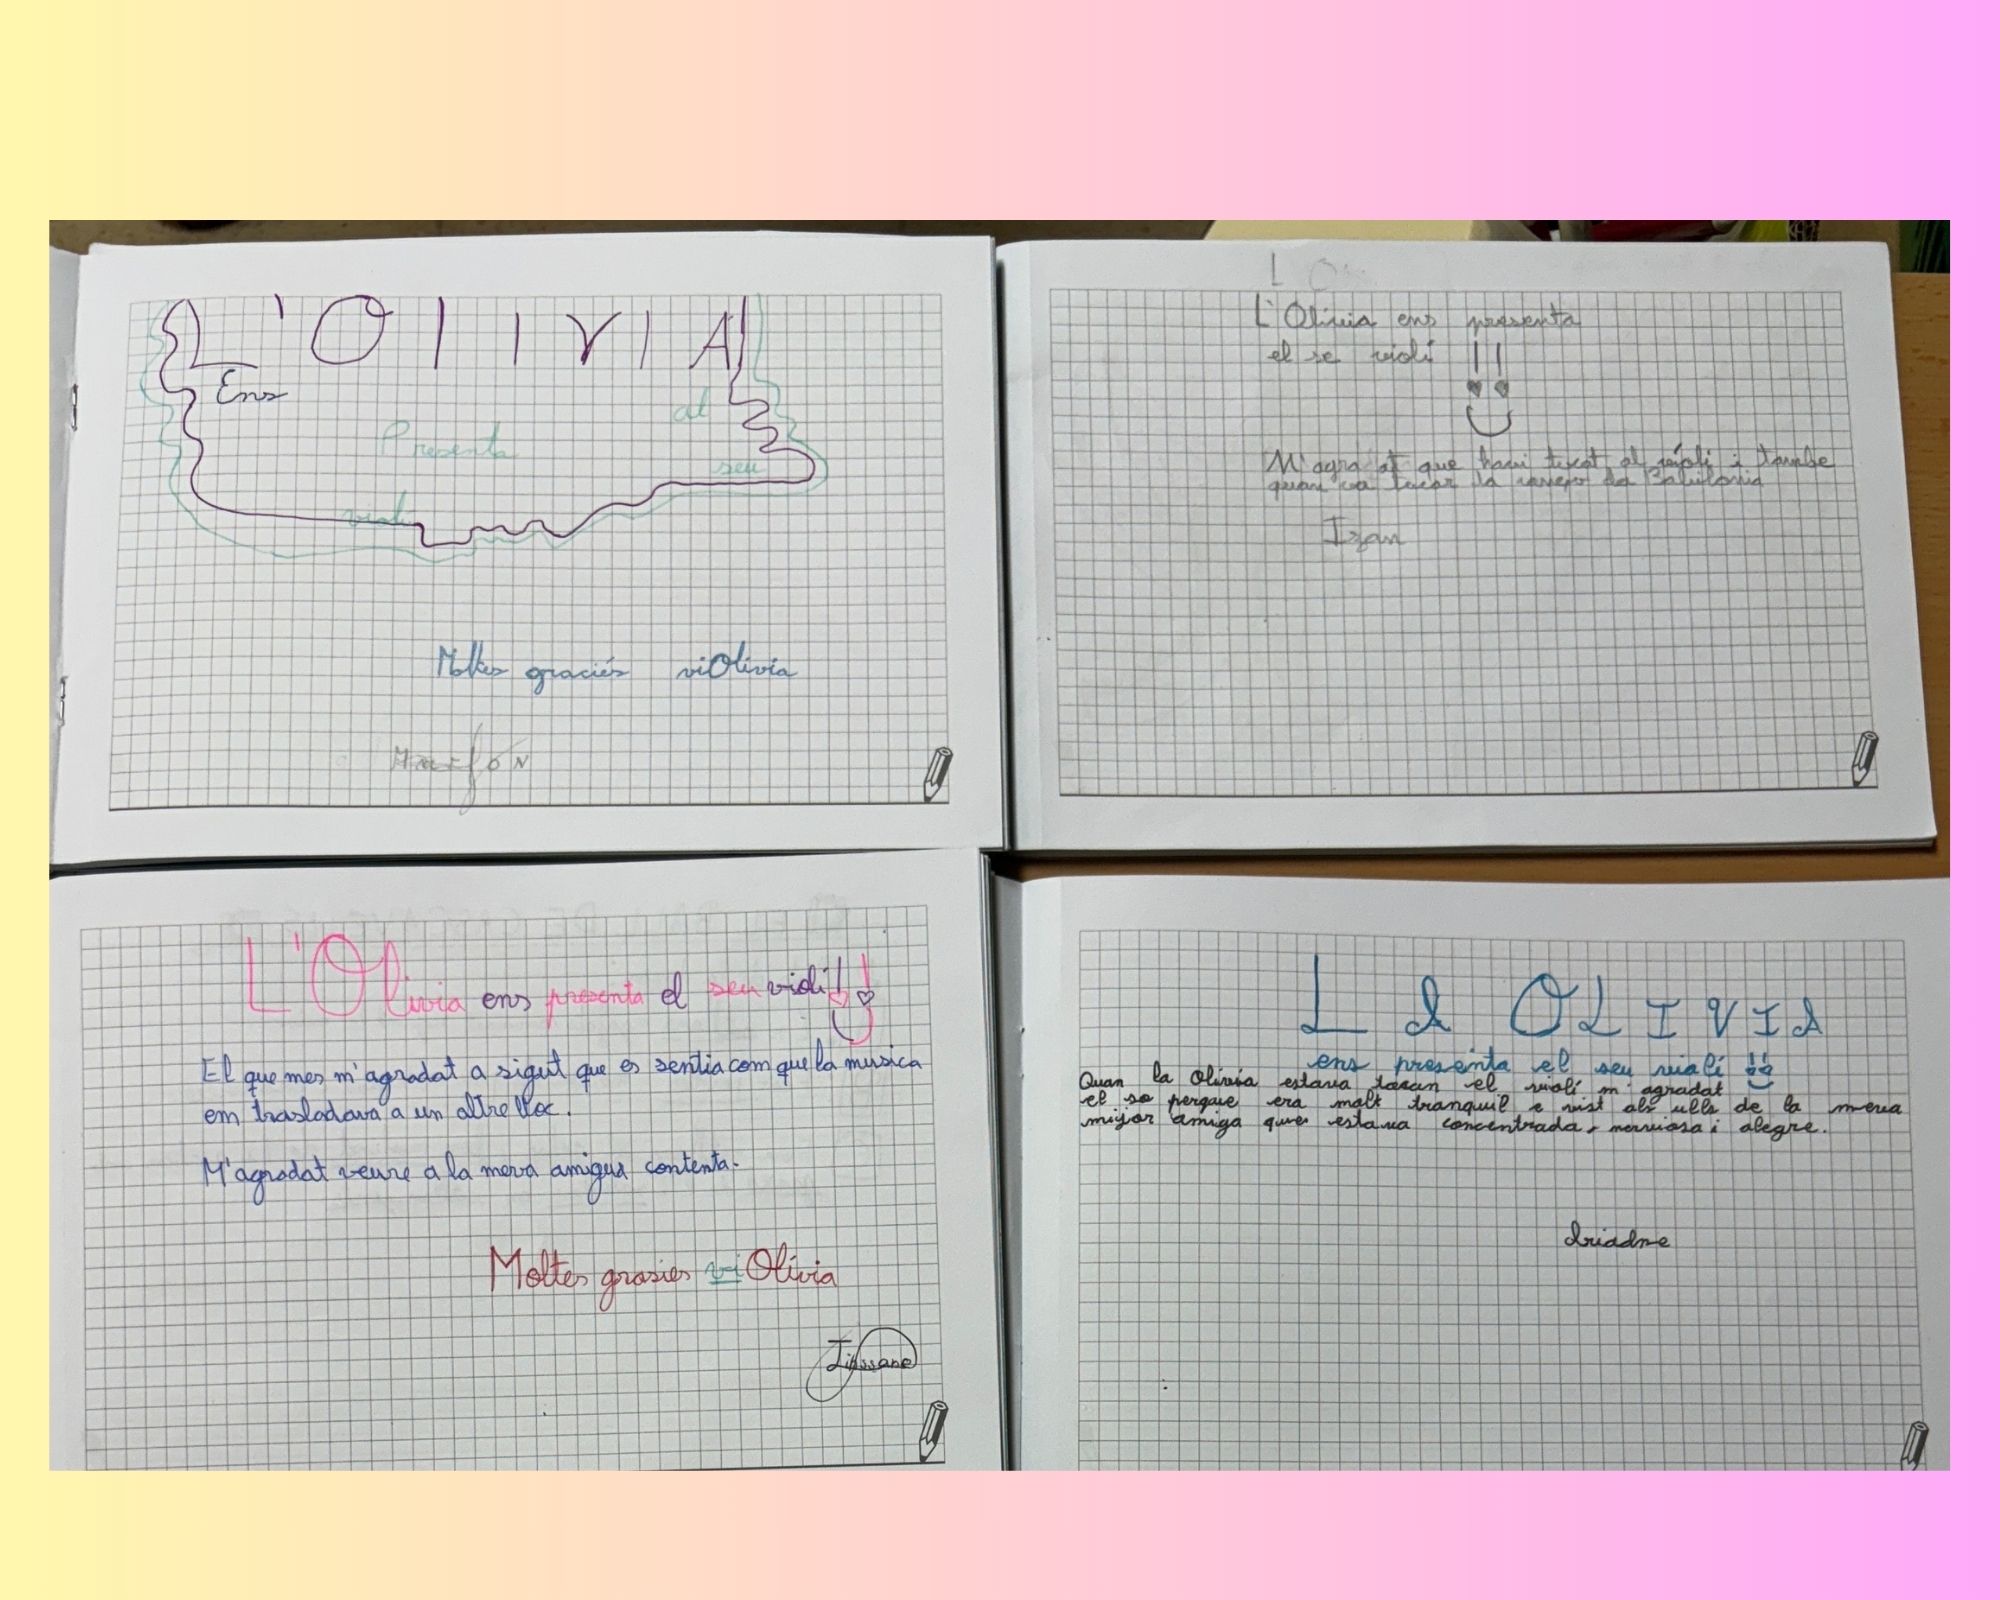 L'OLIVIA
Ens
al
Presenta
seu
violí
Moltes graciés viOlivia
L O
L'Olivia ens presenta
el se violí !!
M'agra at que hawi tucat al violi i tambe
quan va tocar la Babilonia
Izan
L'Olivia ens presenta el seu violí!!
El que mes m'agradat a sigut que es sentia com que la musica
em trasladava a un altre lloc.
M'agradat veure a la meva amigua contenta.
Moltes grasies viOlivia
La OLIVIA
ens presenta el seu violí !!
Quan la Olivia estava tocan el violí m'agradat
el so perque era molt tranquil e vist als ulls de la meva
mijor amiga que estava concentrada, nerviosa i alegre.
Ariadne